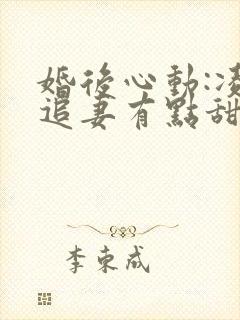 婚後心動:
追妻有點甜
李東成